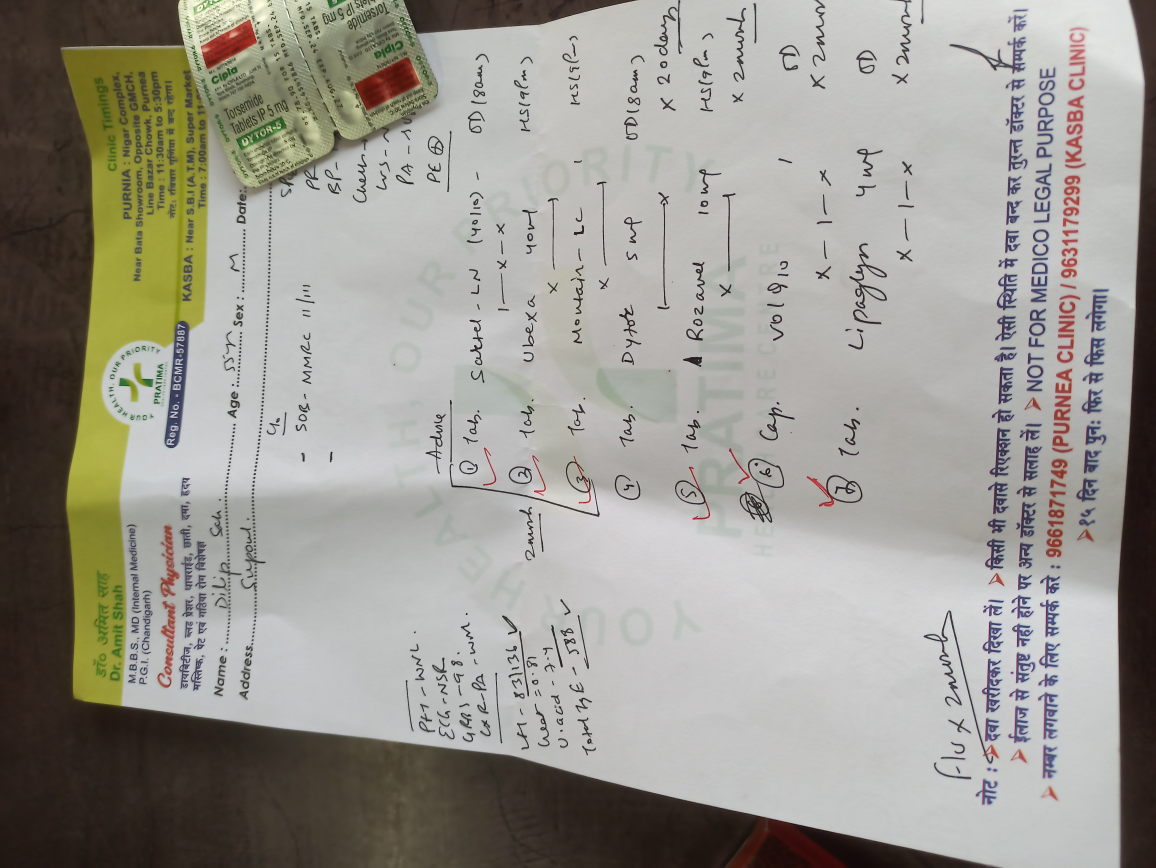 डॉ० अमित साह
Dr. Amit Shah
M.B.B.S., MD (Internal Medicine)
P.G.I. (Chandigarh)
Consultant Physician
डायबिटीज, ब्लड प्रेशर, थायराईड, छाती, दमा, हृदय
मस्तिष्क, पेट एवं गठिया रोग विशेषज्ञ
YOUR HEALTH, OUR PRIORITY
PRATIMA
Reg. No. - BCMR-57887
Clinic Timings
PURNIA : Nigar Complex,
Near Bata Showroom, Opposite GMCH,
Line Bazar Chowk, Purnea
Time : 11:30am to 5:30pm
नोट: रविवार पूर्णिया में बन्द रहेगा।
KASBA : Near S.B.I (A.T.M), Super Market
Time : 7:00am to 11
Name : Dilip Sah. Age : 55y Sex : M Date:
Address Supaul.
Torsemide
Tablets IP 5 mg
DYTOR-5
Cipla
Torsemide
Tablets IP 5 mg
Cipla
- SOB - MMRC II/III
-
PR
BP -
Chest -
PA -
PE ⊕
PFT - WNL
ECG - NSR
GRBS - 98.
CXR-PA - WNL
Creat = 0.81
U.acid - 7.4
Total IgE - 588 ✓
Advice
① Tab. Sartel-LN (40/10) - OD (8am)
1 - x - x
② Tab. Ubexa 40mg HS (9Pm)
x 1
③ Tab. Montair-LC HS (9Pm)
x 1
2month
④ Tab. Dytor 5mg OD (8am)
1 x x 20days
⑤ Tab. Rozavel 10mg HS (9Pm)
x 1 x 2month
⑥ Cap. Vol 910 OD
x - 1 - x x 2month
⑦ Tab. Lipaglyn 4mg OD
x - 1 - x x 2month
YOUR HEALTH, OUR PRIORITY
PRATIMA
HEALTHCARE
F/U x 2month
नोट : दवा खरीदकर दिखा लें। किसी भी दवासे रिएक्शन हो सकता है। ऐसी स्थिति में दवा बन्द कर तुरन्त डॉक्टर से सम्पर्क करें।
ईलाज से संतुष्ट नही होने पर अन्य डॉक्टर से सलाह लें। NOT FOR MEDICO LEGAL PURPOSE
नम्बर लगवाने के लिए सम्पर्क करे : 9661871749 (PURNEA CLINIC) / 9631179299 (KASBA CLINIC)
१५ दिन बाद पुनः फिर से फिस लगेगा।